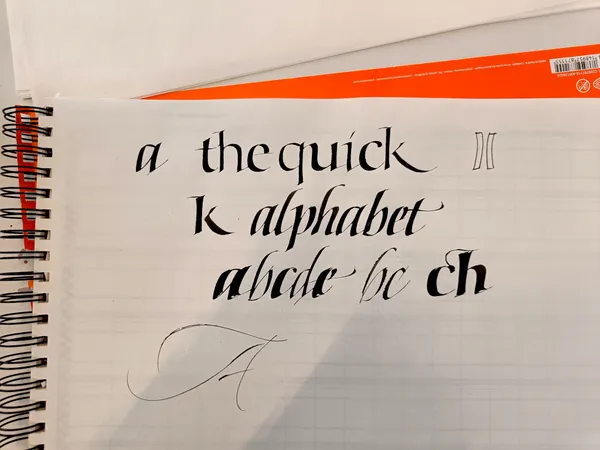 a the quick
k alphabet
abcde bc ch
A